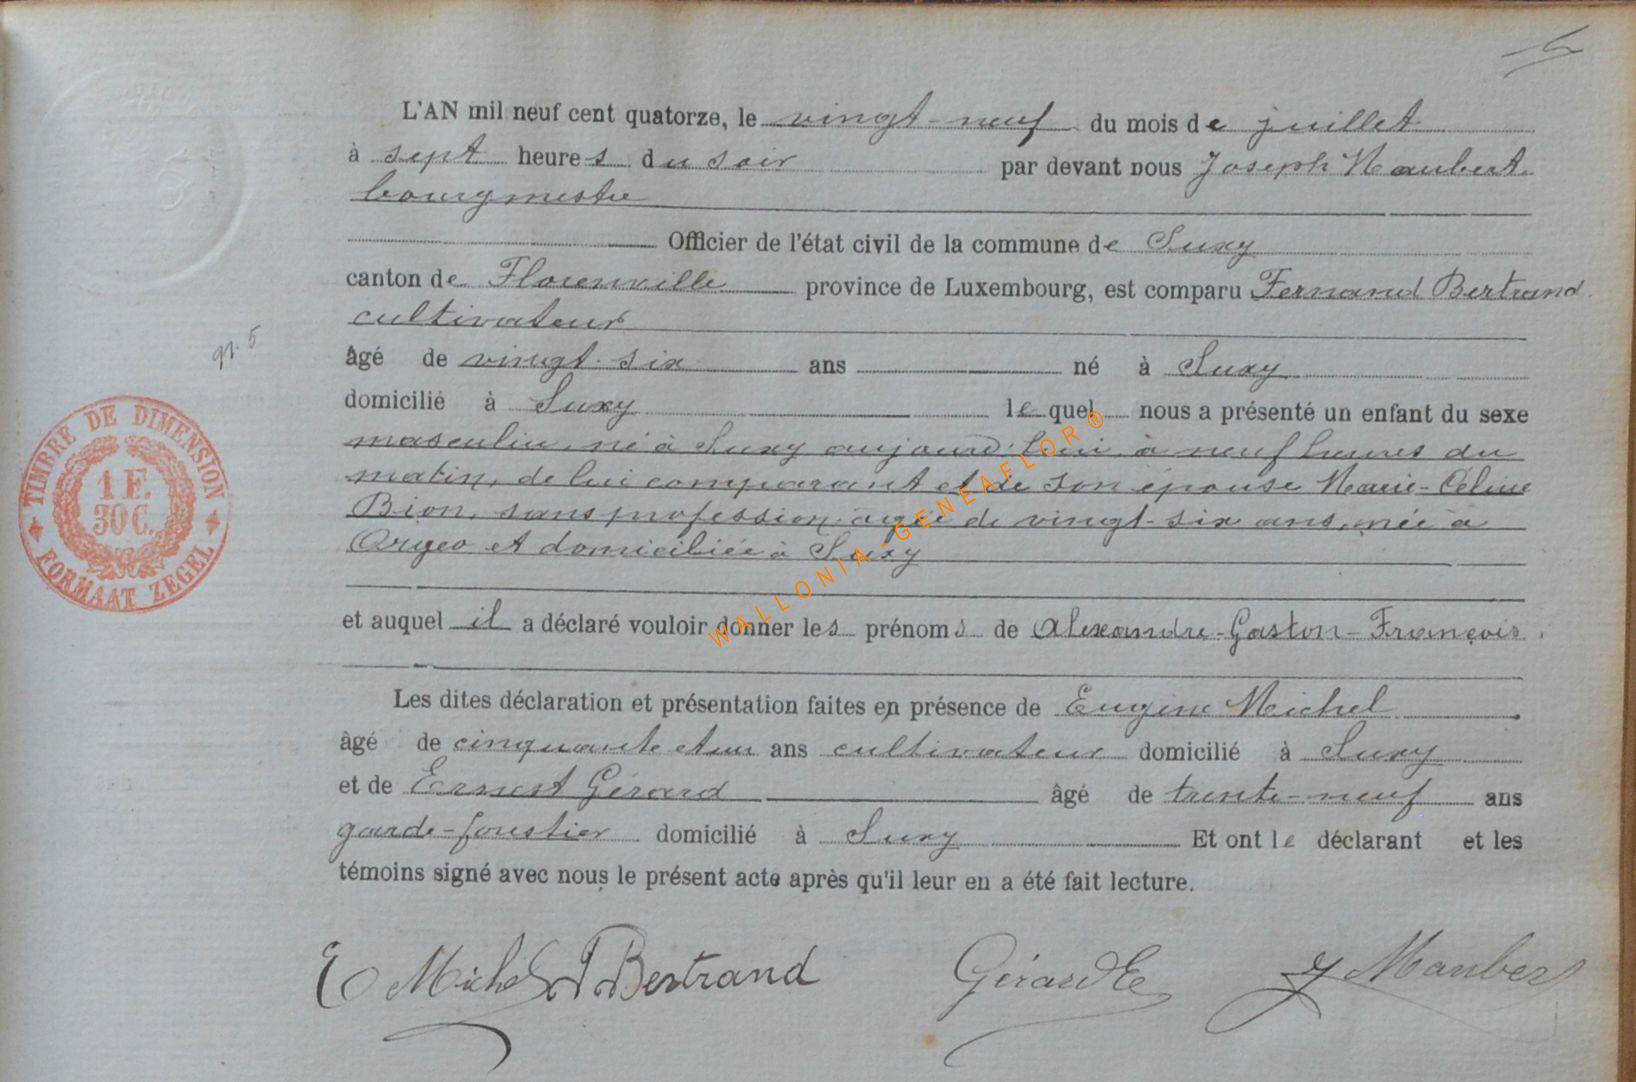 L'AN mil neuf cent quatorze, le vingt-neuf du mois de juillet
à sept heures du soir par devant nous Joseph Maubert
bourgmestre
Officier de l'état civil de la commune de Suxy
canton de Florenville province de Luxembourg, est comparu Fernand Bertrand
cultivateur
âgé de vingt-six ans né à Suxy
n. 5
domicilié à Suxy lequel nous a présenté un enfant du sexe
masculin, né à Suxy aujourd'hui à neuf heures du
matin, de lui comparant et de son épouse Marie-Céline
Bion, sans profession âgée de vingt-six ans, née à
Orgeo et domiciliée à Suxy
et auquel il a déclaré vouloir donner les prénoms de Alexandre-Gaston-François.
Les dites déclaration et présentation faites en présence de Eugène Michel
âgé de cinquante et un ans cultivateur domicilié à Suxy
et de Ernest Gérard âgé de trente-neuf ans
garde-forestier domicilié à Suxy Et ont le déclarant et les
témoins signé avec nous le présent acte après qu'il leur en a été fait lecture.
E Michel F Bertrand Gérard E J Maubert
TIMBRE DE DIMENSION
1 F.
30 C.
FORMAAT ZEGEL
WALLONIA-GENEAFLOR®